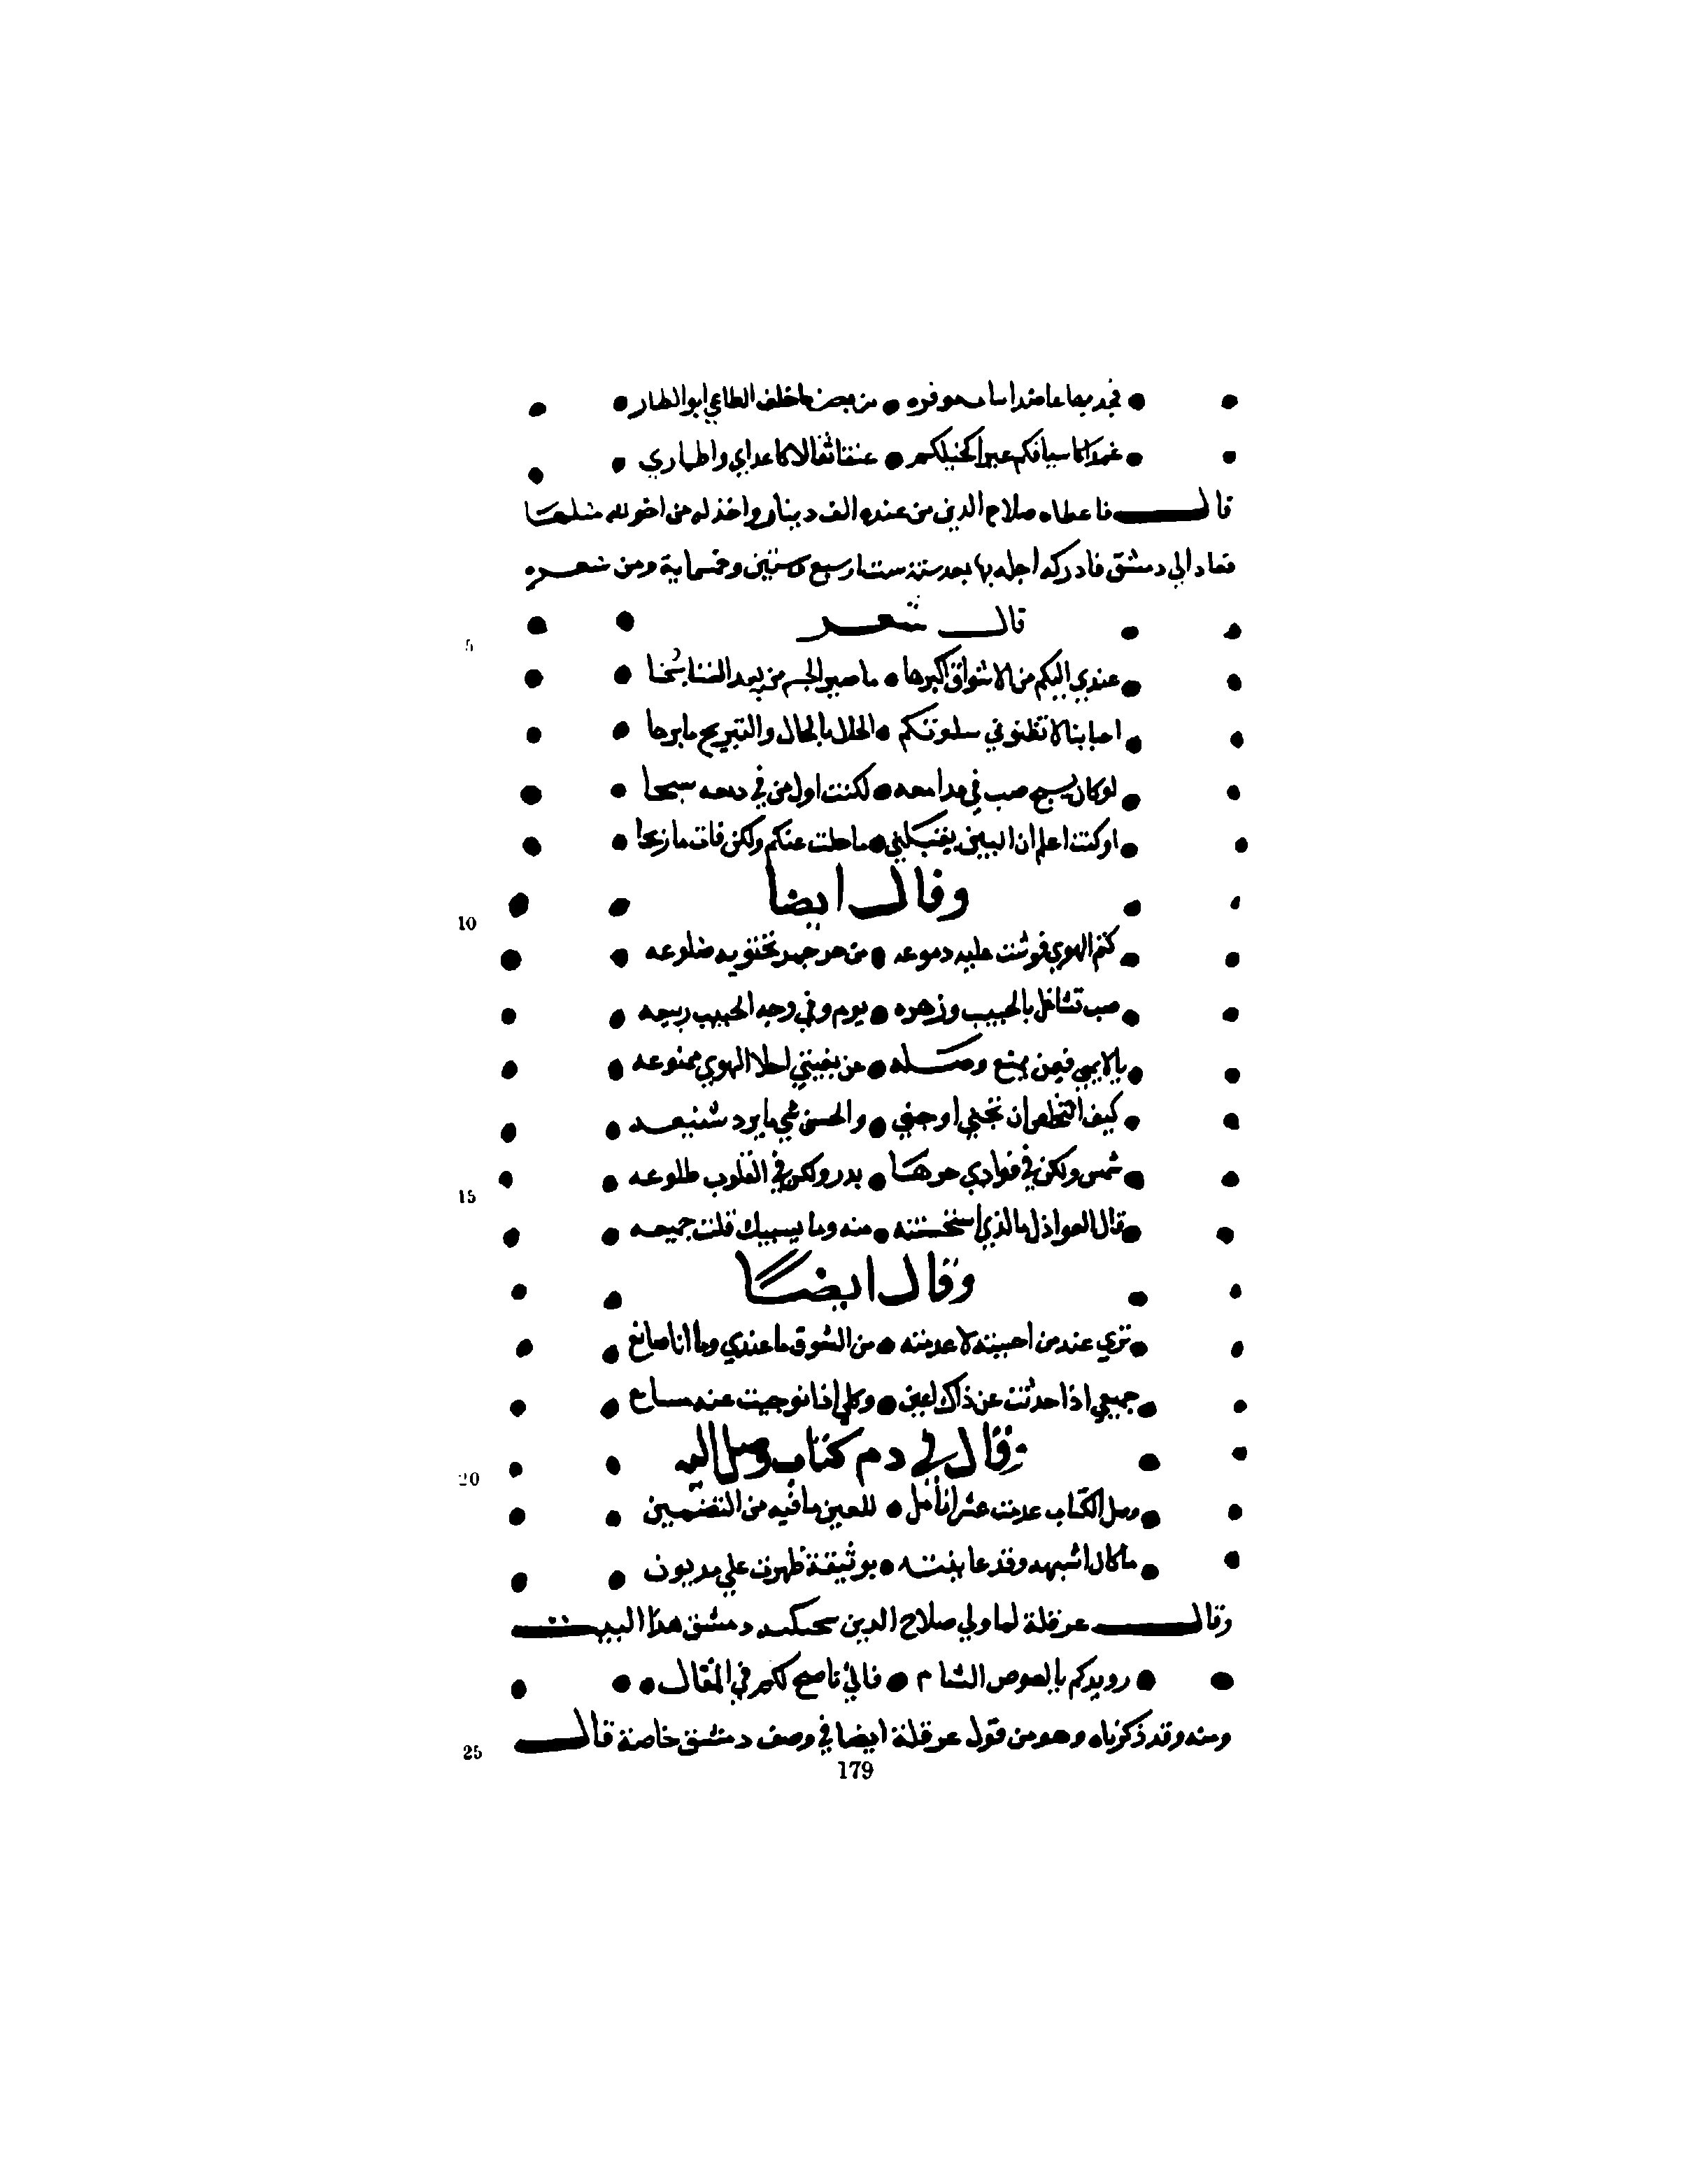 فجد بها عاضدا موفره • من بعض ما خلف الطاغي ابو الطار
حمرا كاسيافكم غبرا كخيلكم • عتقا ثقالا كاعداي واطماري
قال فاعطاه صلاح الدين من عنده الف دينار واخذ له من اخوته مثلها
فعاد الي دمشق فادركه اجله بها بعد سنة ست او سبع وستين وخمسماية ومن شعره
قال شعر
5
عندي اليكم من الاشواق اكبرها • ما صير الجسم من بعد الضنا شبحا
احبابنا لا تظنوني سلوتكم • الحال بالحال والتبريح ما برحا
لو كان يسبح صب في مدامعه • لكنت اول من في دمعه سبحا
او كنت اعلم ان البين يقتلني • ما حلت عنكم ولكن فات ما ربحا
وقال ايضا
10
كتم الهوي فوشت عليه دموعه • من حر جمر تحتويه ضلوعه
صب تشاغل بالحبيب وزهره • يوم وفي وجه الحبيب ربيعه
يا لايمي فيمن يمنع وصله • عن بغيتي احلا الهوي ممنوعه
كيف التخلص ان تجني او جني • والحسن شي ما يرد شفيعه
شمس ولكن في فوادي حرها • بدر ولكن في القلوب طلوعه
15
قال العواذل ما الذي استحسنته • منه وما يسبيك قلت جميعه
وقال ايضا
تري عند من احببته لا عدمته • من الشوق ما عندي وما انا صانع
جميعي اذا حدثت عن ذاك اعين • وكلي اذا نوجيت عنه مسامع
وقال في ذم كتاب وصل اليه
20
وصل الكتاب عدمت عشر انامل • للعين ما فيه من التضمين
ما كان اشبهه وقد عاينته • بوثيقة ظهرت علي مديون
وقال عرقلة لما ولي صلاح الدين دمشق هذا البيت
رويدكم يا لصوص الشام • فاني ناصح لكم في المقال
ومنه وقد ذكرناه وهو من قول عرقلة ايضا في وصف دمشق خاصة قال
25
179